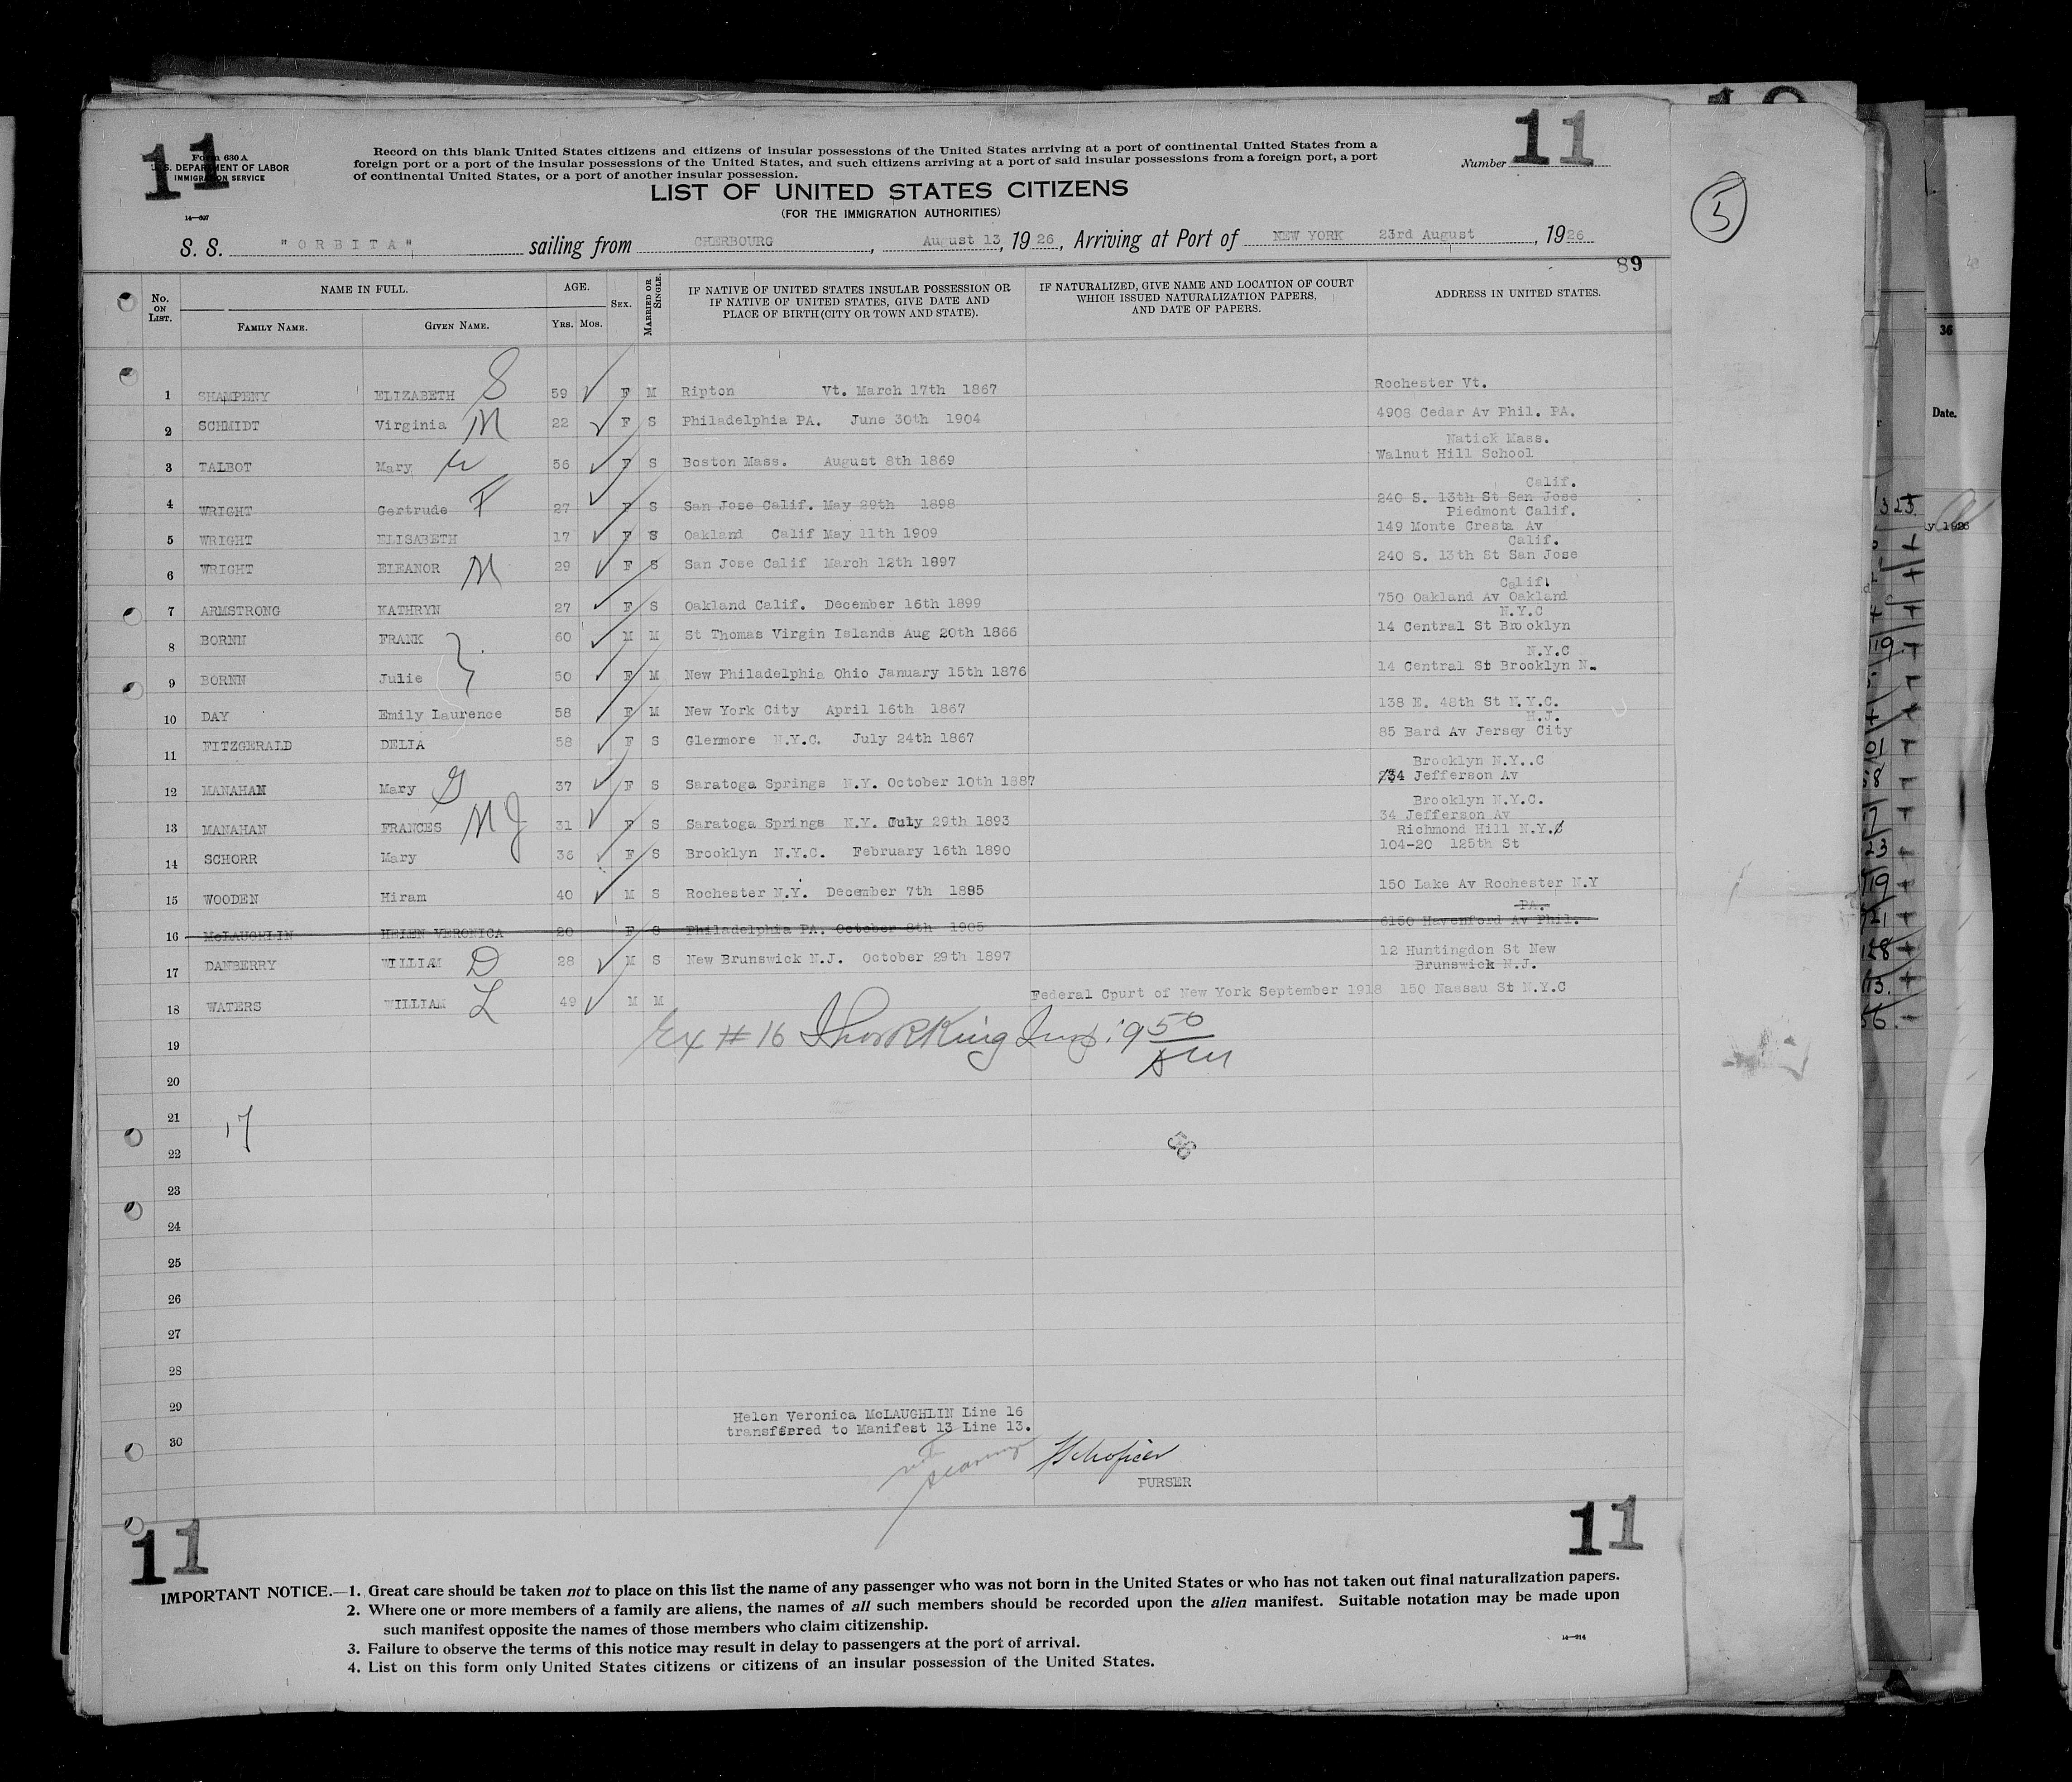 11
11
Form 630 A
U.S. DEPARTMENT OF LABOR
IMMIGRATION SERVICE
14—687
Record on this blank United States citizens and citizens of insular possessions of the United States arriving at a port of continental United States from a
foreign port or a port of the insular possessions of the United States, and such citizens arriving at a port of said insular possessions from a foreign port, a port
of continental United States, or a port of another insular possession.
Number
LIST OF UNITED STATES CITIZENS
(FOR THE IMMIGRATION AUTHORITIES)
5
S. S. "ORBITA" sailing from CHERBOURG, August 13, 1926, Arriving at Port of NEW YORK 23rd August, 1926
89
No. ON LIST. NAME IN FULL. FAMILY NAME. GIVEN NAME. AGE. YRS. MOS. SEX. MARRIED OR SINGLE. IF NATIVE OF UNITED STATES INSULAR POSSESSION OR IF NATIVE OF UNITED STATES, GIVE DATE AND PLACE OF BIRTH (CITY OR TOWN AND STATE). IF NATURALIZED, GIVE NAME AND LOCATION OF COURT WHICH ISSUED NATURALIZATION PAPERS, AND DATE OF PAPERS. ADDRESS IN UNITED STATES.
1 SHAMPENY ELIZABETH S 59 F M Ripton Vt. March 17th 1867 Rochester Vt.
2 SCHMIDT Virginia M 22 F S Philadelphia PA. June 30th 1904 4908 Cedar Av Phil. PA.
3 TALBOT Mary 56 F S Boston Mass. August 8th 1869 Natick Mass.
Walnut Hill School
4 WRIGHT Gertrude F 27 F S San Jose Calif. May 29th 1898 Calif.
240 S. 13th St San Jose
5 WRIGHT ELISABETH 17 F S Oakland Calif May 11th 1909 Piedmont Calif.
149 Monte Cresta Av
6 WRIGHT ELEANOR M 29 F S San Jose Calif March 12th 1897 Calif.
240 S. 13th St San Jose
7 ARMSTRONG KATHRYN 27 F S Oakland Calif. December 16th 1899 Calif.
750 Oakland Av Oakland
8 BORNN FRANK 60 M M St Thomas Virgin Islands Aug 20th 1866 N.Y.C
14 Central St Brooklyn
9 BORNN Julie 50 F M New Philadelphia Ohio January 15th 1876 N.Y.C
14 Central St Brooklyn N.
10 DAY Emily Laurence 58 F M New York City April 16th 1867 138 E. 48th St N.Y.C.
11 FITZGERALD DELIA 58 F S Glenmore N.Y.C. July 24th 1867 N.J.
85 Bard Av Jersey City
12 MANAHAN Mary G 37 F S Saratoga Springs N.Y. October 10th 1887 Brooklyn N.Y..C
34 Jefferson Av
13 MANAHAN FRANCES M J 31 F S Saratoga Springs N.Y. July 29th 1893 Brooklyn N.Y.C.
34 Jefferson Av
14 SCHORR Mary 36 F S Brooklyn N.Y.C. February 16th 1890 Richmond Hill N.Y.C
104-20 125th St
15 WOODEN Hiram 40 M S Rochester N.Y. December 7th 1885 150 Lake Av Rochester N.Y
16 McLAUGHLIN HELEN VERONICA 20 F S Philadelphia PA. October 8th 1905 PA.
6150 Havenford Av Phil.
17 DANBERRY WILLIAM D 28 M S New Brunswick N.J. October 29th 1897 12 Huntingdon St New
Brunswick N.J.
18 WATERS WILLIAM L 49 M M Federal Cpurt of New York September 1918 150 Nassau St N.Y.C
19 Ex # 16 King Insp. 9 50 AM
20
21
17
22
23
24
25
26
27
28
29
30
Helen Veronica McLAUGHLIN Line 16
transferred to Manifest 13 Line 13.
PURSER
11
11
IMPORTANT NOTICE.—1. Great care should be taken not to place on this list the name of any passenger who was not born in the United States or who has not taken out final naturalization papers.
2. Where one or more members of a family are aliens, the names of all such members should be recorded upon the alien manifest. Suitable notation may be made upon
such manifest opposite the names of those members who claim citizenship.
3. Failure to observe the terms of this notice may result in delay to passengers at the port of arrival.
4. List on this form only United States citizens or citizens of an insular possession of the United States.
14—914
36
Date.